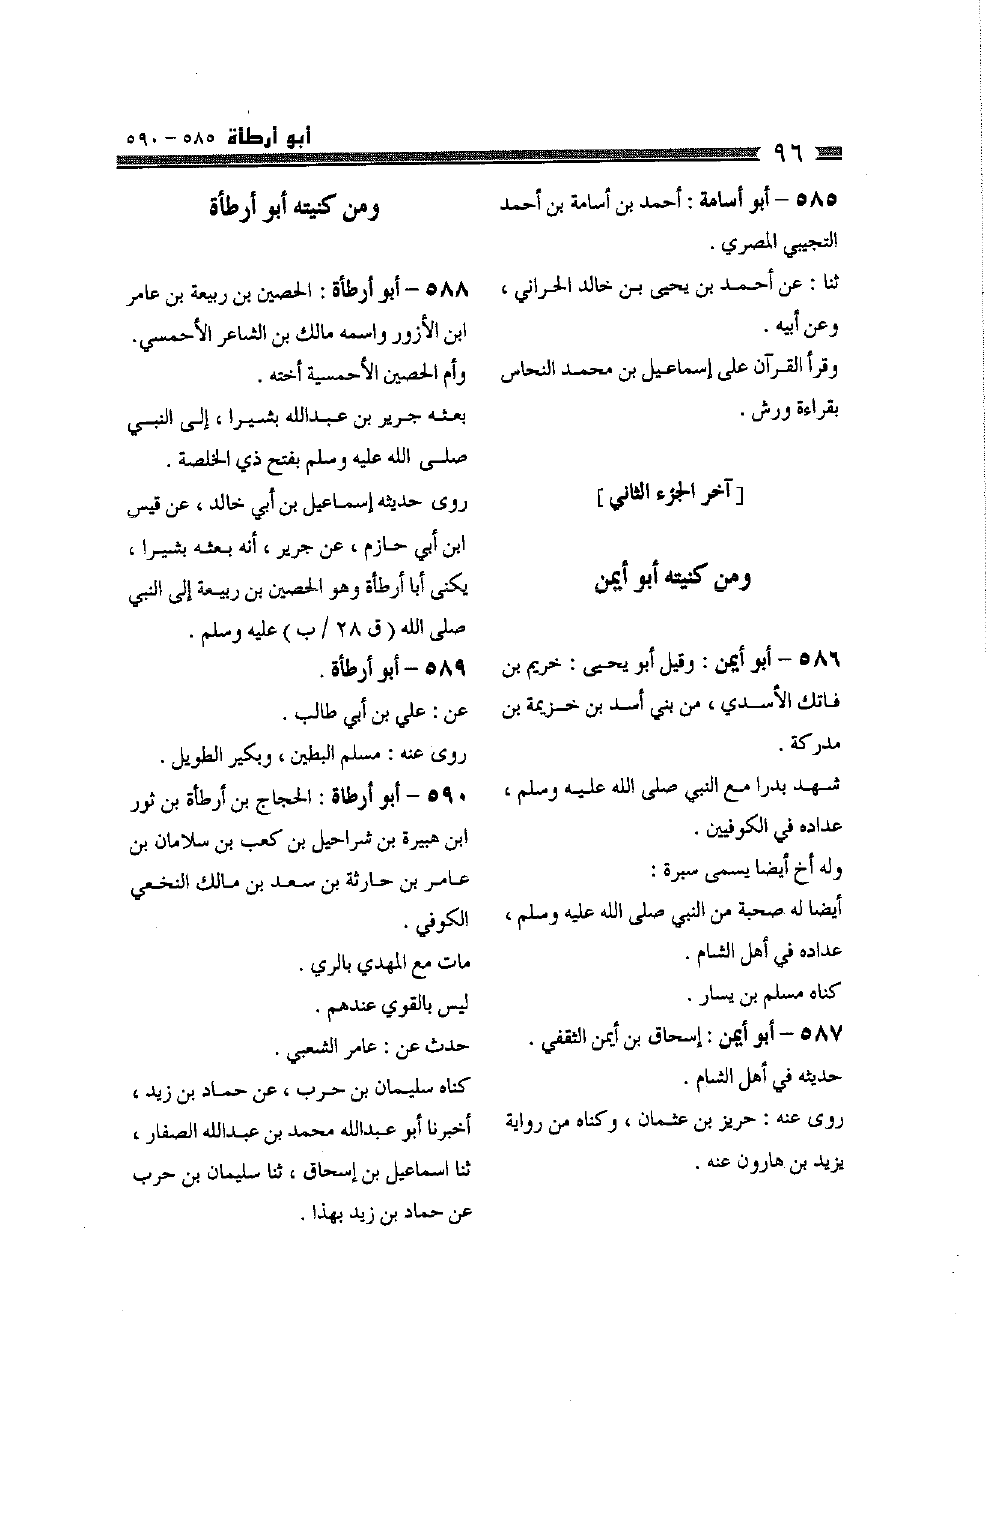 أبو أرطأة ٥٨٥ – ٥٩٠
٩٦
٥٨٥ – أبو أسامة : أحمد بن أسامة بن أحمد
التجيبي المصري .
ثنا : عن أحمد بن يحيى بن خالد الحراني ،
وعن أبيه .
وقرأ القرآن على إسماعيل بن محمد النحاس
بقراءة ورش .
[ آخر الجزء الثاني ]
ومن كنيته أبو أيمن
٥٨٦ – أبو أيمن : وقيل أبو يحيى : خريم بن
فاتك الأسدي ، من بني أسد بن خزيمة بن
مدركة .
شهد بدرا مع النبي صلى الله عليه وسلم ،
عداده في الكوفيين .
وله أخ أيضا يسمى سبرة :
أيضا له صحبة من النبي صلى الله عليه وسلم ،
عداده في أهل الشام .
كناه مسلم بن يسار .
٥٨٧ – أبو أيمن : إسحاق بن أيمن الثقفي .
حديثه في أهل الشام .
روى عنه : حريز بن عثمان ، وكناه من رواية
يزيد بن هارون عنه .
ومن كنيته أبو أرطأة
٥٨٨ – أبو أرطأة : الحصين بن ربيعة بن عامر
ابن الأزور واسمه مالك بن الشاعر الأحمسي.
وأم الحصين الأحمسية أخته .
بعثه جرير بن عبدالله بشيرا ، إلى النبي
صلى الله عليه وسلم بفتح ذي الخلصة .
روى حديثه إسماعيل بن أبي خالد ، عن قيس
ابن أبي حازم ، عن جرير ، أنه بعثه بشيرا ،
يكنى أبا أرطأة وهو الحصين بن ربيعة إلى النبي
صلى الله ( ق ٢٨ / ب ) عليه وسلم .
٥٨٩ – أبو أرطأة .
عن : علي بن أبي طالب .
روى عنه : مسلم البطين ، وبكير الطويل .
٥٩٠ – أبو أرطاة : الحجاج بن أرطأة بن ثور
ابن هبيرة بن شراحيل بن كعب بن سلامان بن
عامر بن حارثة بن سعد بن مالك النخعي
الكوفي .
مات مع المهدي بالري .
ليس بالقوي عندهم .
حدث عن : عامر الشعبي .
كناه سليمان بن حرب ، عن حماد بن زيد ،
أخبرنا أبو عبدالله محمد بن عبدالله الصفار ،
ثنا اسماعيل بن إسحاق ، ثنا سليمان بن حرب
عن حماد بن زيد بهذا .